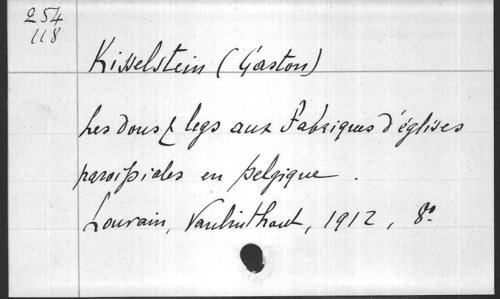 254
118
Kisselstein (Gaston)
Les dons & legs aux Fabriques d'églises
paroissiales en Belgique.
Louvain, Vanlinthout, 1912, 8º